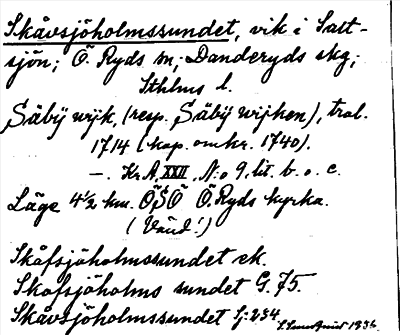 Skåvsjöholmssundet, vik i Salt-
sjön; Ö. Ryds sn; Danderyds skg;
Sthlms l.
Säby wijk, (resp. Säby wijken), tral.
1714 (kop. omkr. 1740).
–. Kr. A. XXII, N:o 9, lit. b. o. c.
Läge 4½ km. ÖSÖ Ö. Ryds kyrka.
(Vänd!)
Skåfsjöholmssundet ek.
Skofsjöholms sundet G. 75.
Skåvsjöholmssundet Sj: 234
1936.